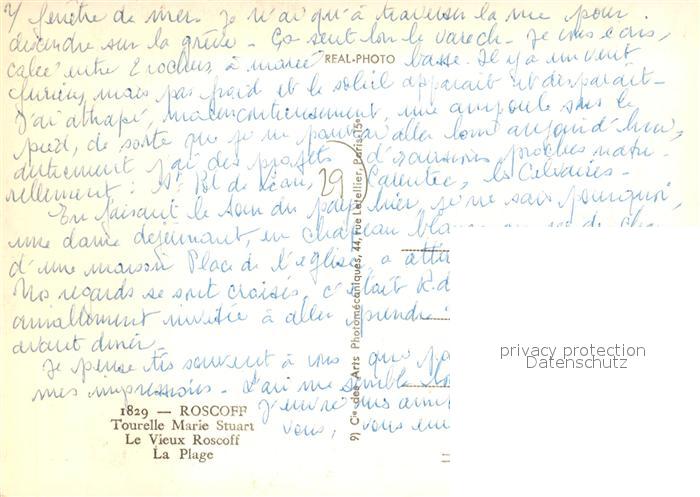 fenêtre de mer. Je n'ai qu'à traverser la rue pour
descendre sur la grève. Ça sent bon le varech. Je vous écris,
REAL-PHOTO
calée entre 2 rochers, à marée basse. Il y a un vent
furieux mais pas froid et le soleil apparaît et disparaît.
J'ai attrapé, malencontreusement, une ampoule sous le
pied, de sorte que je ne pouvais aller loin aujourd'hui,
autrement j'ai des projets d'excursions proches natu-
rellement : St Pol de Léon, Carentec, les Calvaires.
29
En faisant le tour du pays hier, je ne sais pourquoi,
une dame déjeunant, en chapeau
d'une maison Place de l'église, a
Nos regards se sont croisés, c'était
amicalement invitée à aller prendre
avant dîner.
Je pense très souvent à vous que
mes impressions.
vous, vous
9) Cie des Arts Photomécaniques, 44, rue Letellier, Paris-15e
privacy protection
Datenschutz
1829 — ROSCOFF
Tourelle Marie Stuart
Le Vieux Roscoff
La Plage